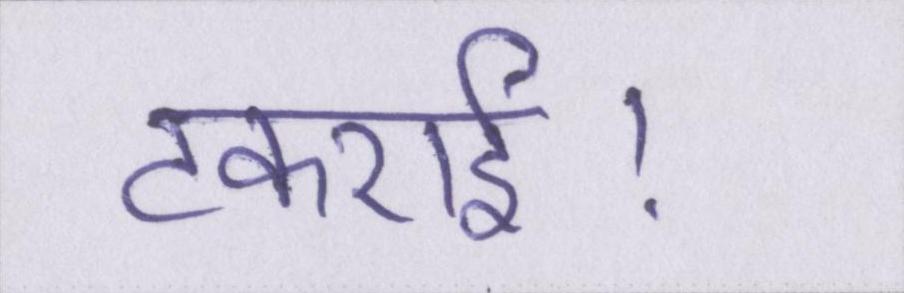 टकराई!